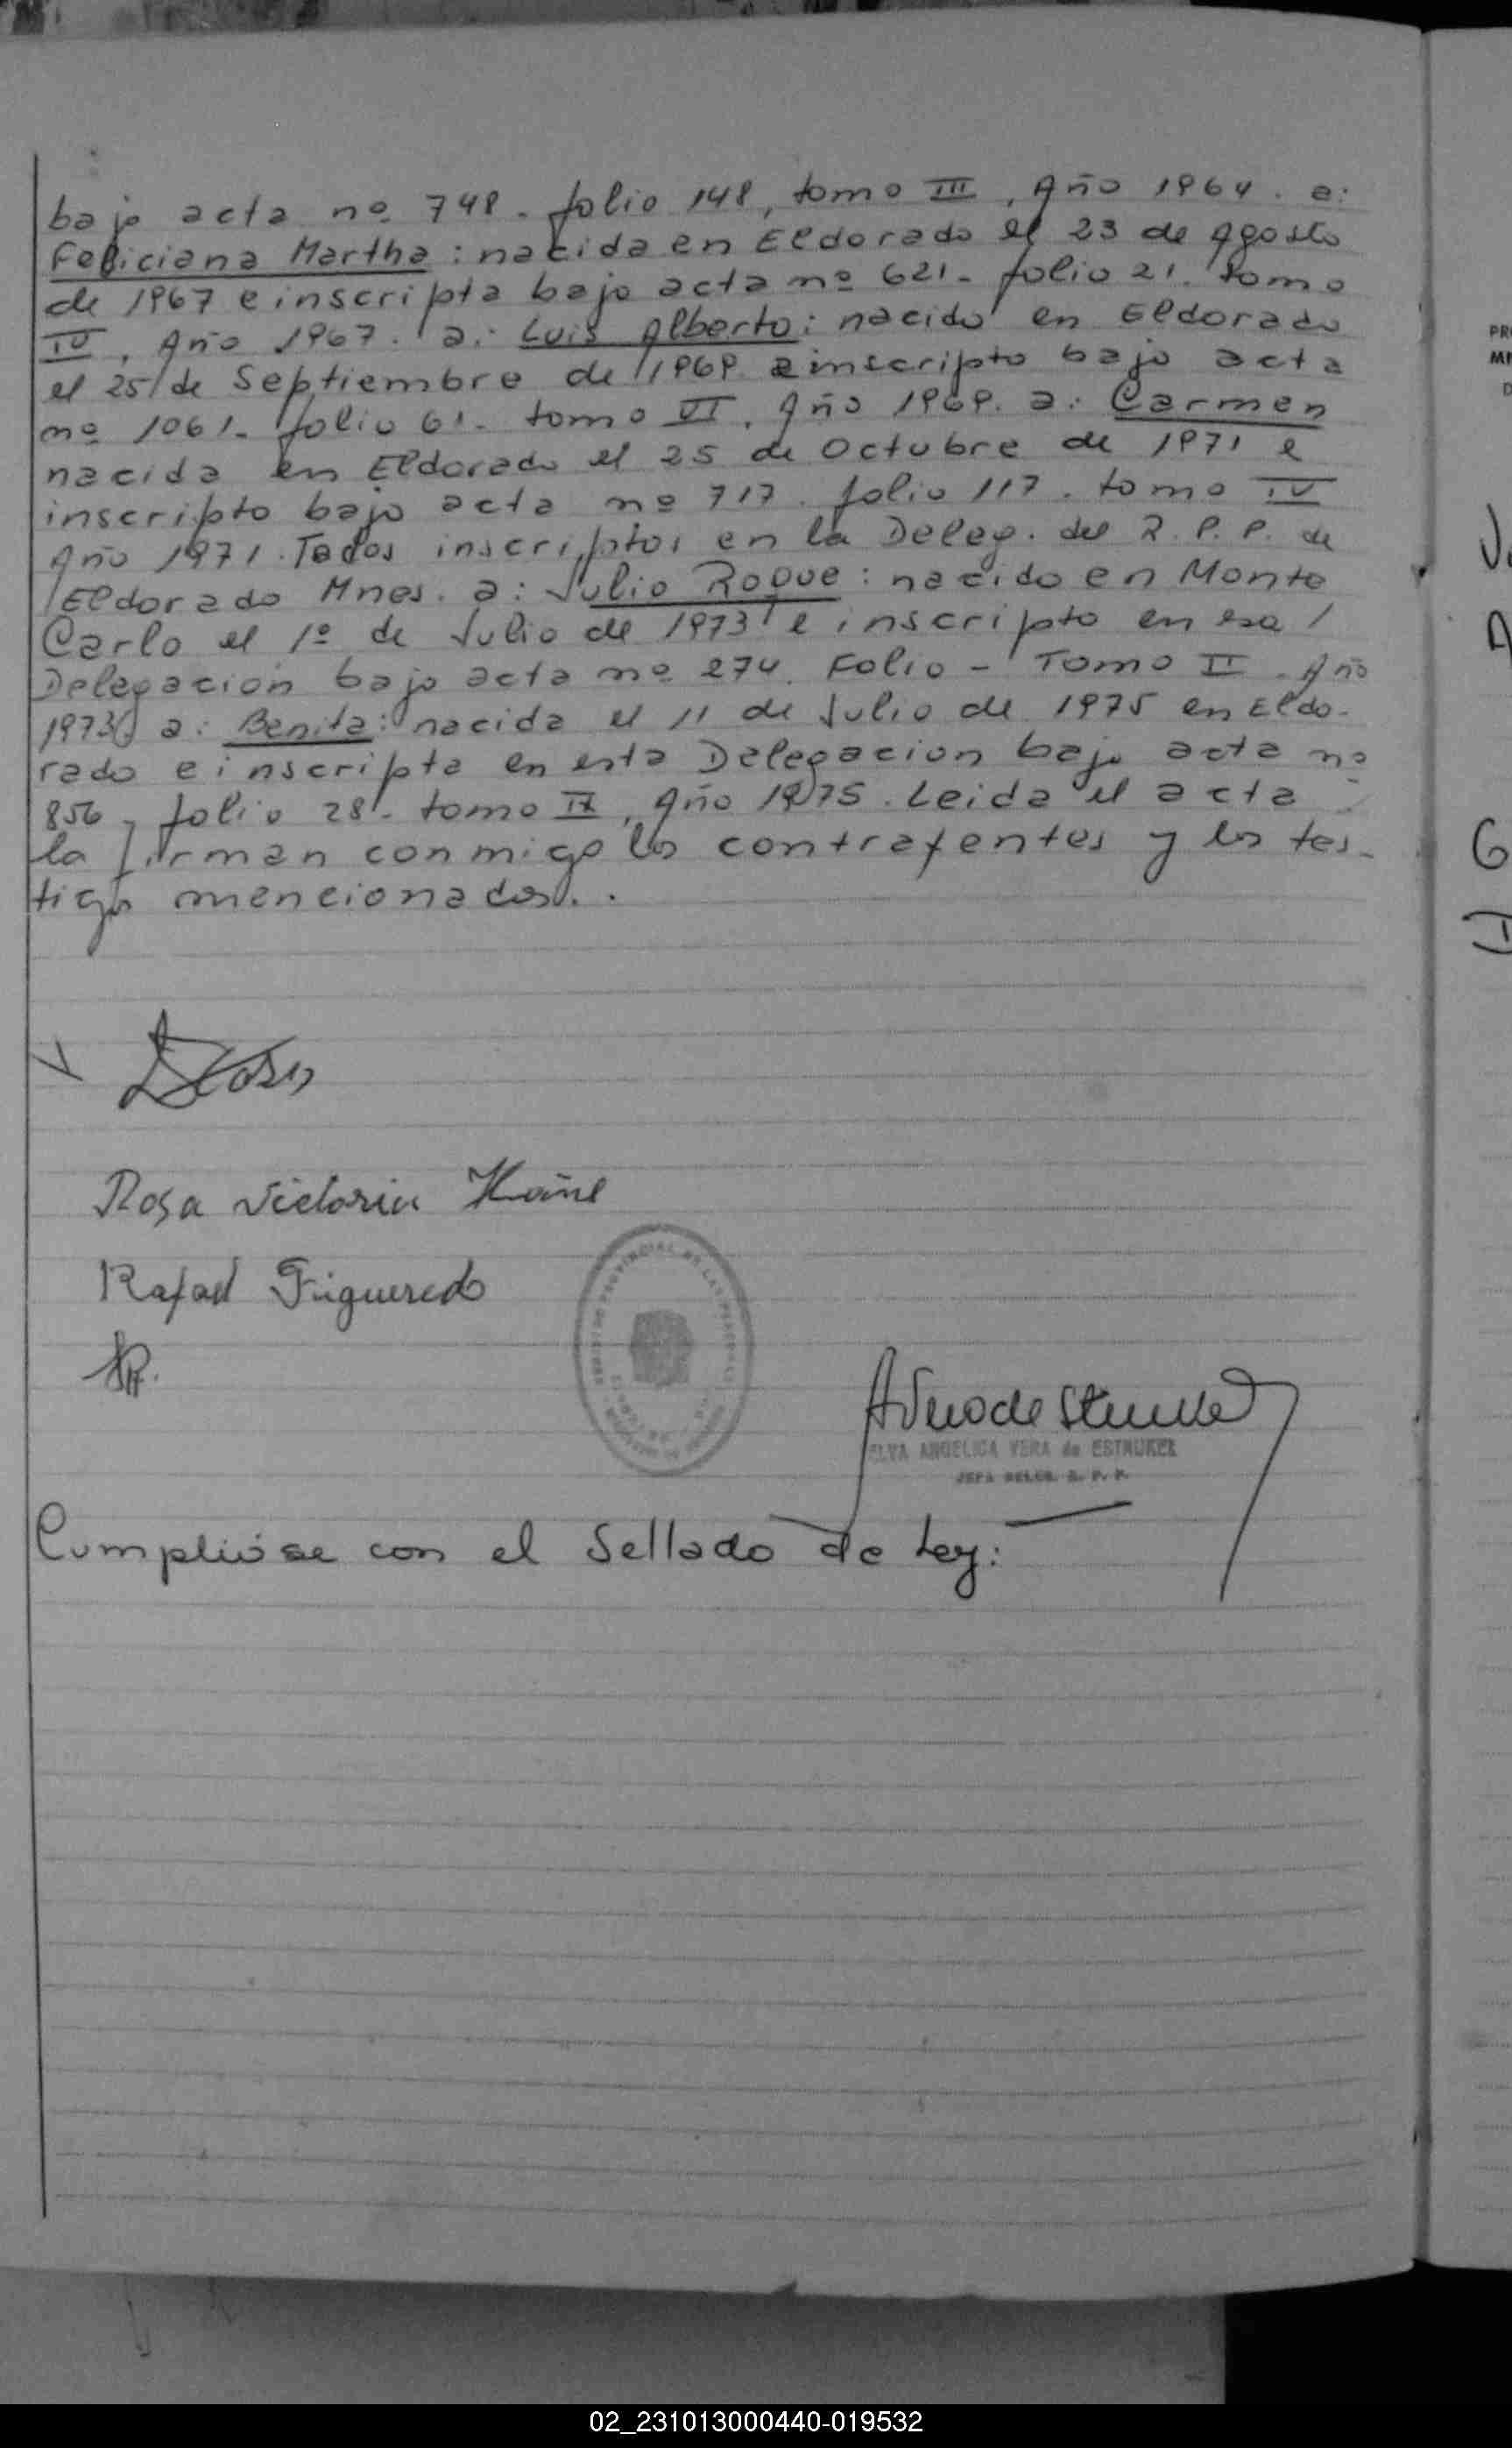 bajo acta nº 748. folio 148, tomo III, Año 1964. a:
Feliciana Martha: nacida en Eldorado el 23 de Agosto
de 1967 e inscripta bajo acta nº 621- folio 21. tomo
IV, Año 1967. a: Luis Alberto: nacido en Eldorado
el 25/de Septiembre de 1969 e inscripto bajo acta
nº 1061- folio 61- tomo VI, Año 1969. a: Carmen
nacida en Eldorado el 25 de Octubre de 1971 e
inscripto bajo acta nº 717. folio 117. tomo IV
Año 1971. Todos inscriptos en la Deleg. del R. P. P. de
Eldorado Mnes. a: Julio Roque: nacido en Monte
Carlo el 1º de Julio de 1973 e inscripto en esa /
Delegación bajo acta nº 274. Folio - Tomo II. Año
1973 a: Benita: nacida el 11 de Julio de 1975 en Eldo-
rado e inscripta en esta Delegacion bajo acta nº
856, folio 28- tomo II, Año 1975. Leida el acta
la firman conmigo los contrayentes y los tes-
tigos mencionados..
Rosa Victoria
Rafael Figueredo
ELVA ANGELICA VERA de ESTRUKEL
JEFA DELEG. R. P. P.
Cumplióse con el Sellado de Ley:
PR
MI
D
G
02_231013000440-019532